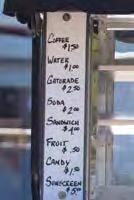 COFFEE
$1.50
WATER
$1.00
GATORADE
$2.50
SODA
$2.00
SANDWICH
$4.00
FRUIT
$.50
CANDY
$1.50
SUNSCREEN
$5.00